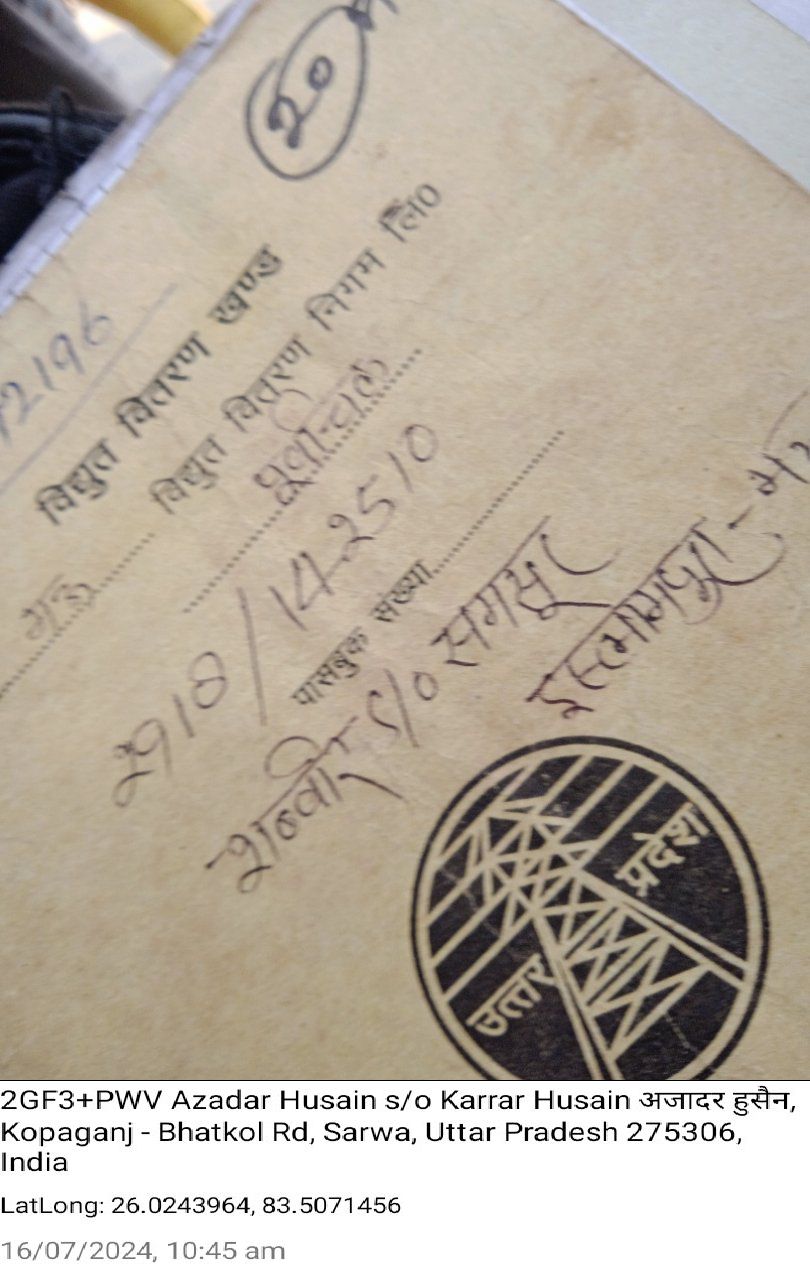 20
2196
विद्युत वितरण खण्ड
विद्युत वितरण निगम लि०
पूर्वांचल
मऊ
2918/142510
पासबुक संख्या
शब्बीर S/o समसुर
इस्लामपुरा -
उत्तर प्रदेश
2GF3+PWV Azadar Husain s/o Karrar Husain अजादर हुसैन,
Kopaganj - Bhatkol Rd, Sarwa, Uttar Pradesh 275306,
India
LatLong: 26.0243964, 83.5071456
16/07/2024, 10:45 am